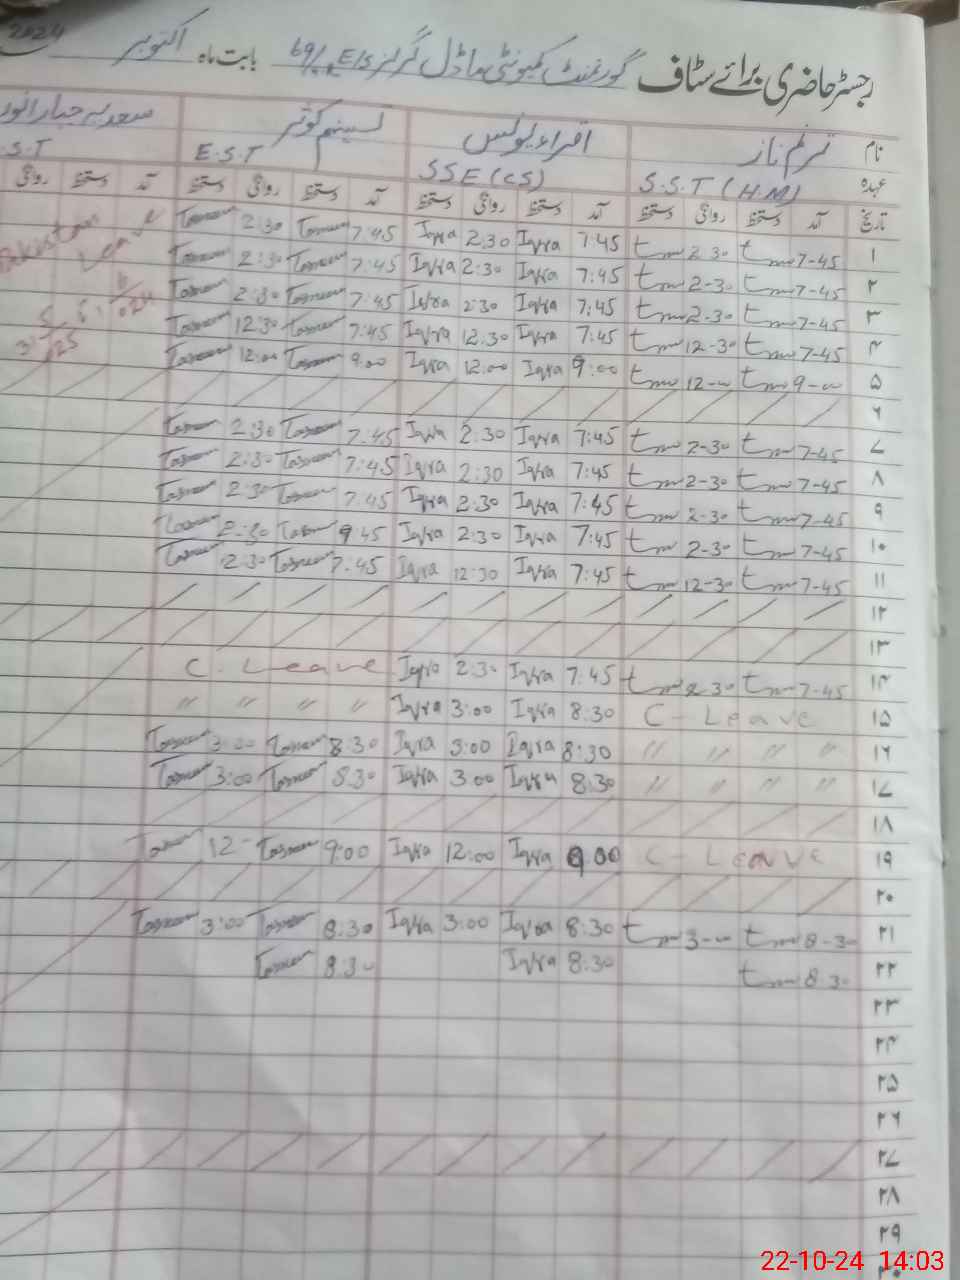 رجسٹر حاضری برائے سٹاف گورنمنٹ کمیونٹی ماڈل گرلز E/S 69/ بابت ماہ اکتوبر 2024
نام ترنم ناز اقراء یونس تسنیم کوثر سعدیہ جبار انور
عہدہ S.S.T (H.M) SSE (CS) E.S.T S.T
تاریخ آمد دستخط روانگی دستخط آمد دستخط روانگی دستخط آمد دستخط روانگی دستخط آمد دستخط روانگی
۱ 7-45 2-30 7:45 Iqra 2:30 Iqra 7:45 Tasneem 2:30 Tasneem Pakistan Leave
۲ 7-45 2-30 7:45 Iqra 2:30 Iqra 7:45 Tasneem 2:30 Tasneem
۳ 7-45 2-30 7:45 Iqra 2:30 Iqra 7:45 Tasneem 2:30 Tasneem
۴ 7-45 12-30 7:45 Iqra 12.30 Iqra 7:45 Tasneem 12:30 Tasneem
۵ 9-00 12-00 9:00 Iqra 12:00 Iqra 9:00 Tasneem 12:00 Tasneem
۶
۷ 7-45 2-30 7:45 Iqra 2:30 Iqra 7:45 Tasneem 2:30 Tasneem
۸ 7-45 2-30 7:45 Iqra 2:30 Iqra 7:45 Tasneem 2:30 Tasneem
۹ 7-45 2-30 7:45 Iqra 2:30 Iqra 7.45 Tasneem 2:30 Tasneem
۱۰ 7-45 2-30 7:45 Iqra 2:30 Iqra 9:45 Tasneem 2:30 Tasneem
۱۱ 7-45 12-30 7:45 Iqra 12:30 Iqra 7:45 Tasneem 12:30 Tasneem
۱۲
۱۳
۱۴ 7-45 2-30 7:45 Iqra 2:30 Iqra C. Leave
۱۵ C - Leave 8:30 Iqra 3:00 Iqra " " " "
۱۶ " " " " 8:30 Iqra 3:00 Iqra 8:30 Tasneem 3:00 Tasneem
۱۷ " " " " 8:30 Iqra 3:00 Iqra 8:30 Tasneem 3:00 Tasneem
۱۸
۱۹ C - Leave 9.00 Iqra 12:00 Iqra 9:00 Tasneem 12- Tasneem
۲۰
۲۱ 8-30 3-00 8:30 Iqra 3:00 Iqra 8:30 Tasneem 3:00 Tasneem
۲۲ 8.30 8:30 Iqra 8:30 Tasneem
۲۳
۲۴
۲۵
۲۶
۲۷
۲۸
۲۹
۳۰
22-10-24 14:03